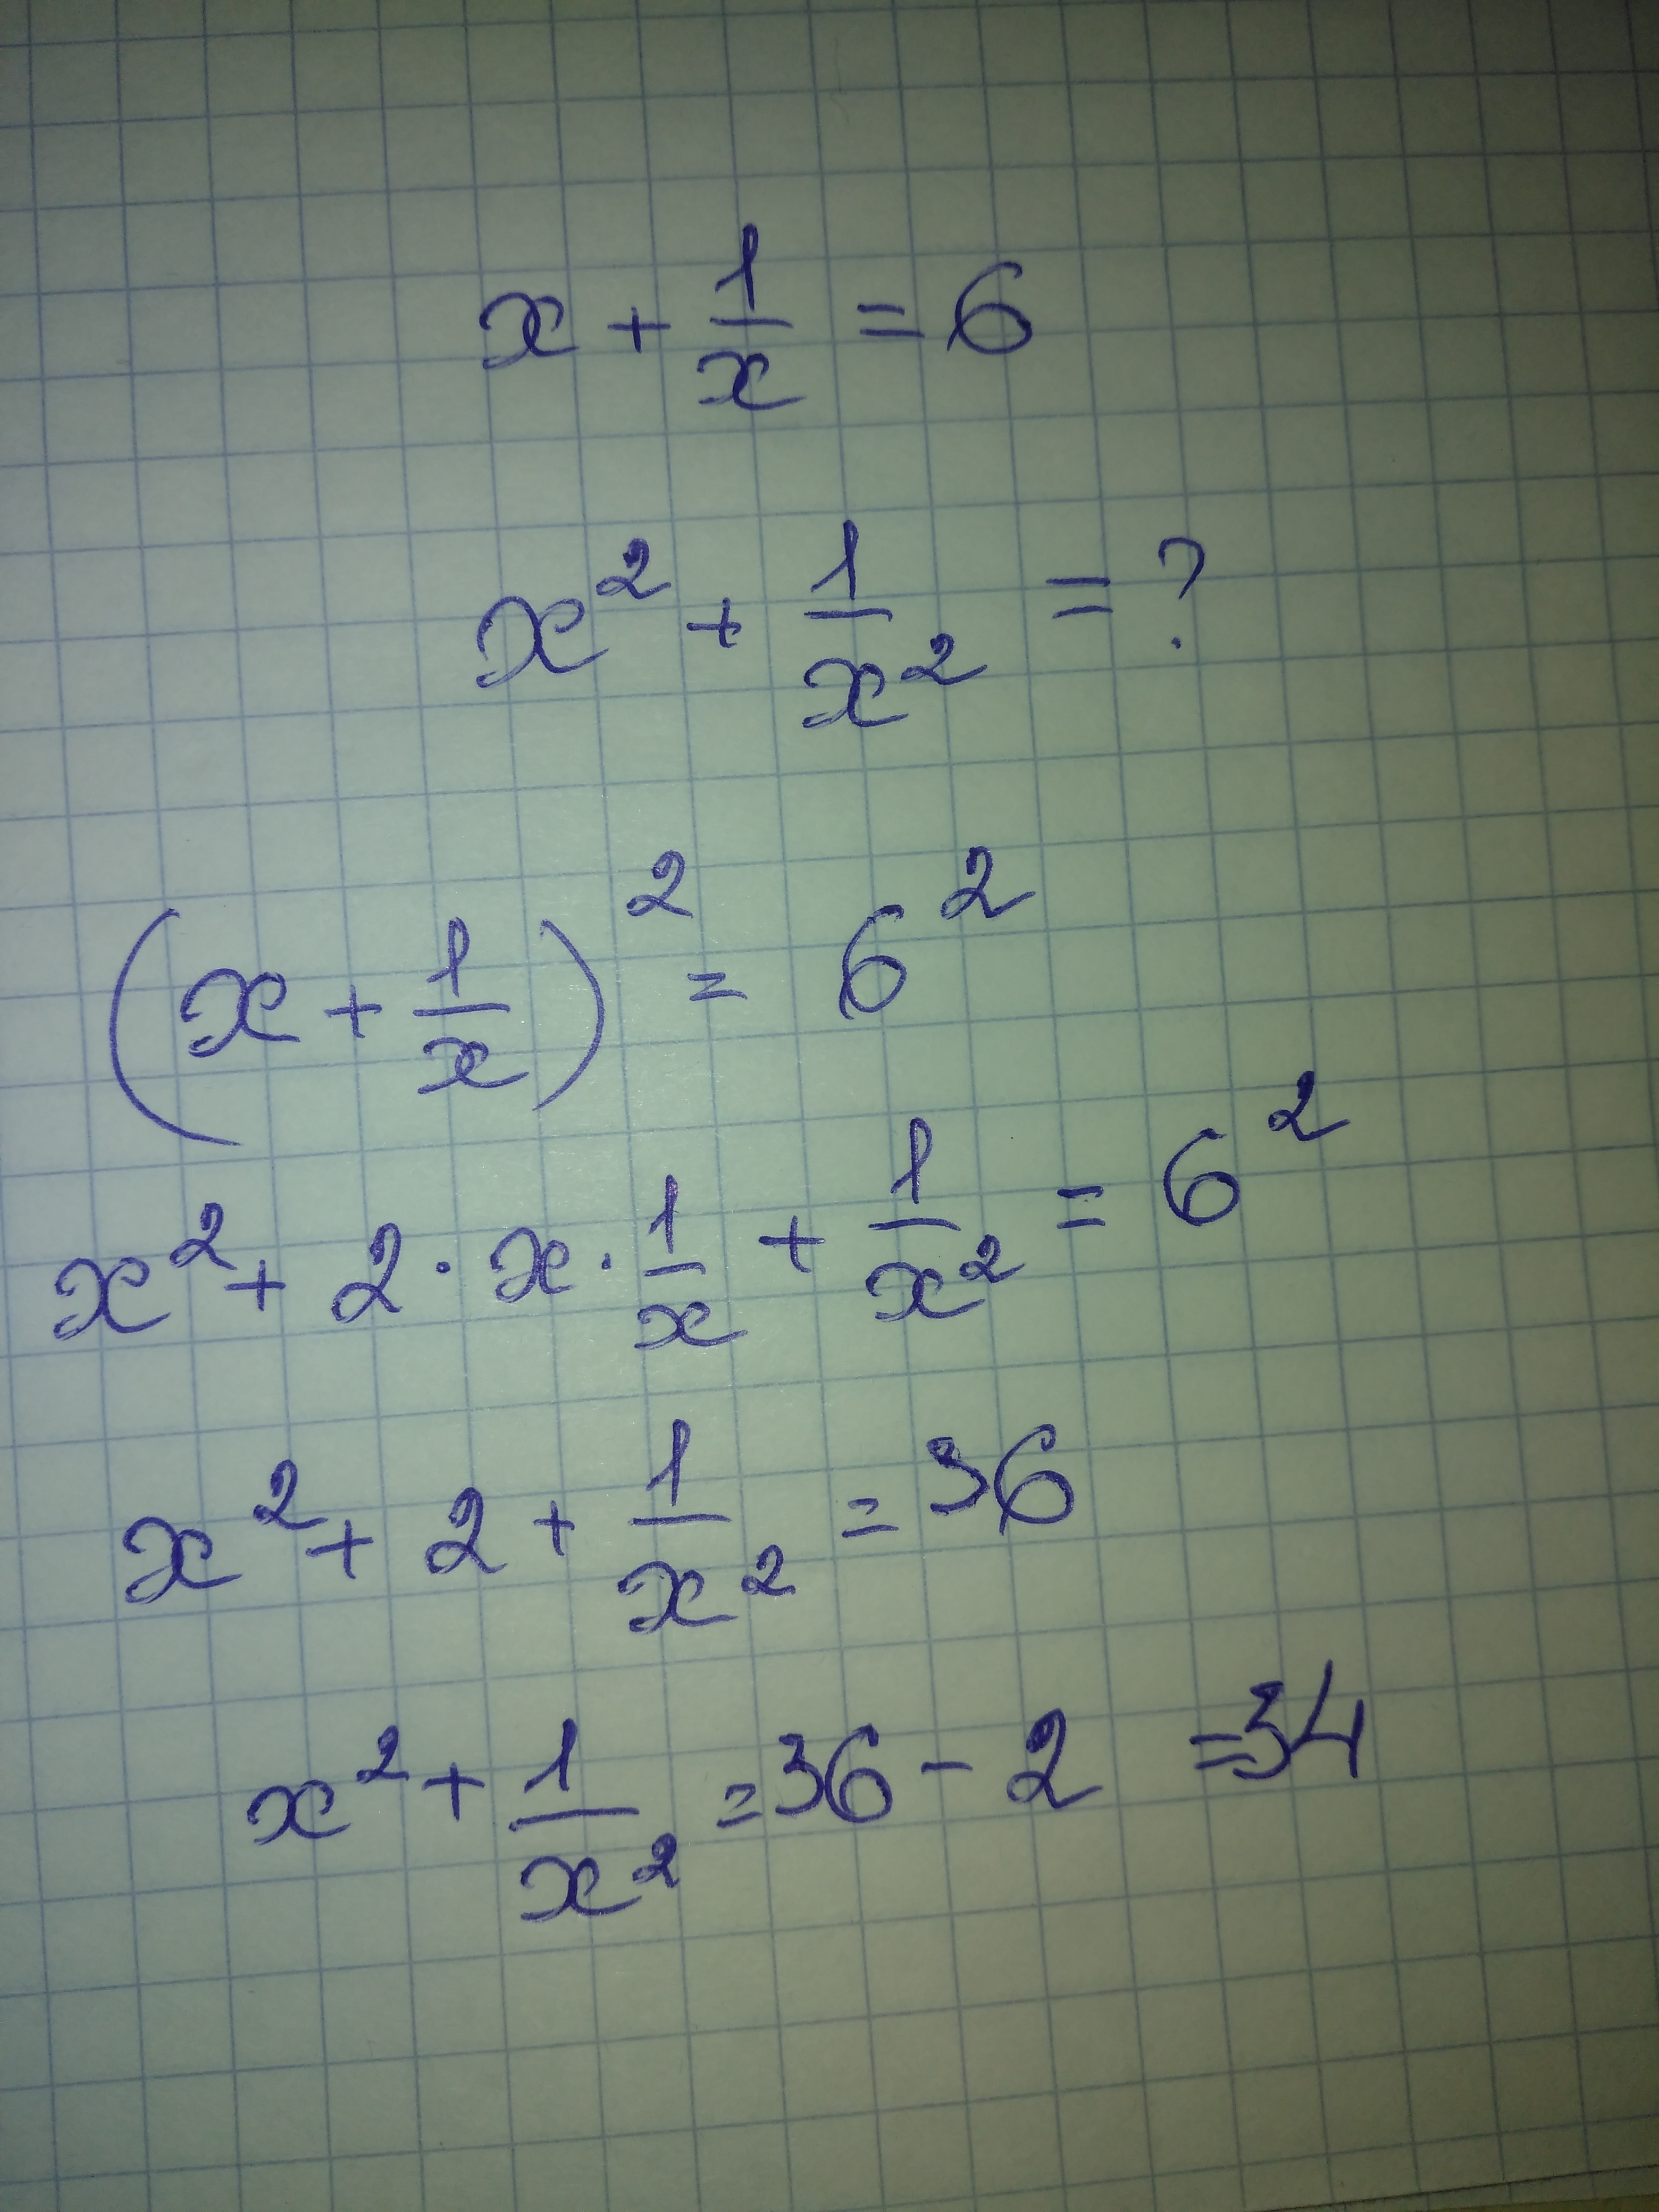 x + 1/x = 6
x² + 1/x² = ?
(x + 1/x)² = 6²
x² + 2 · x · 1/x + 1/x² = 6²
x² + 2 + 1/x² = 36
x² + 1/x² = 36 - 2 = 34